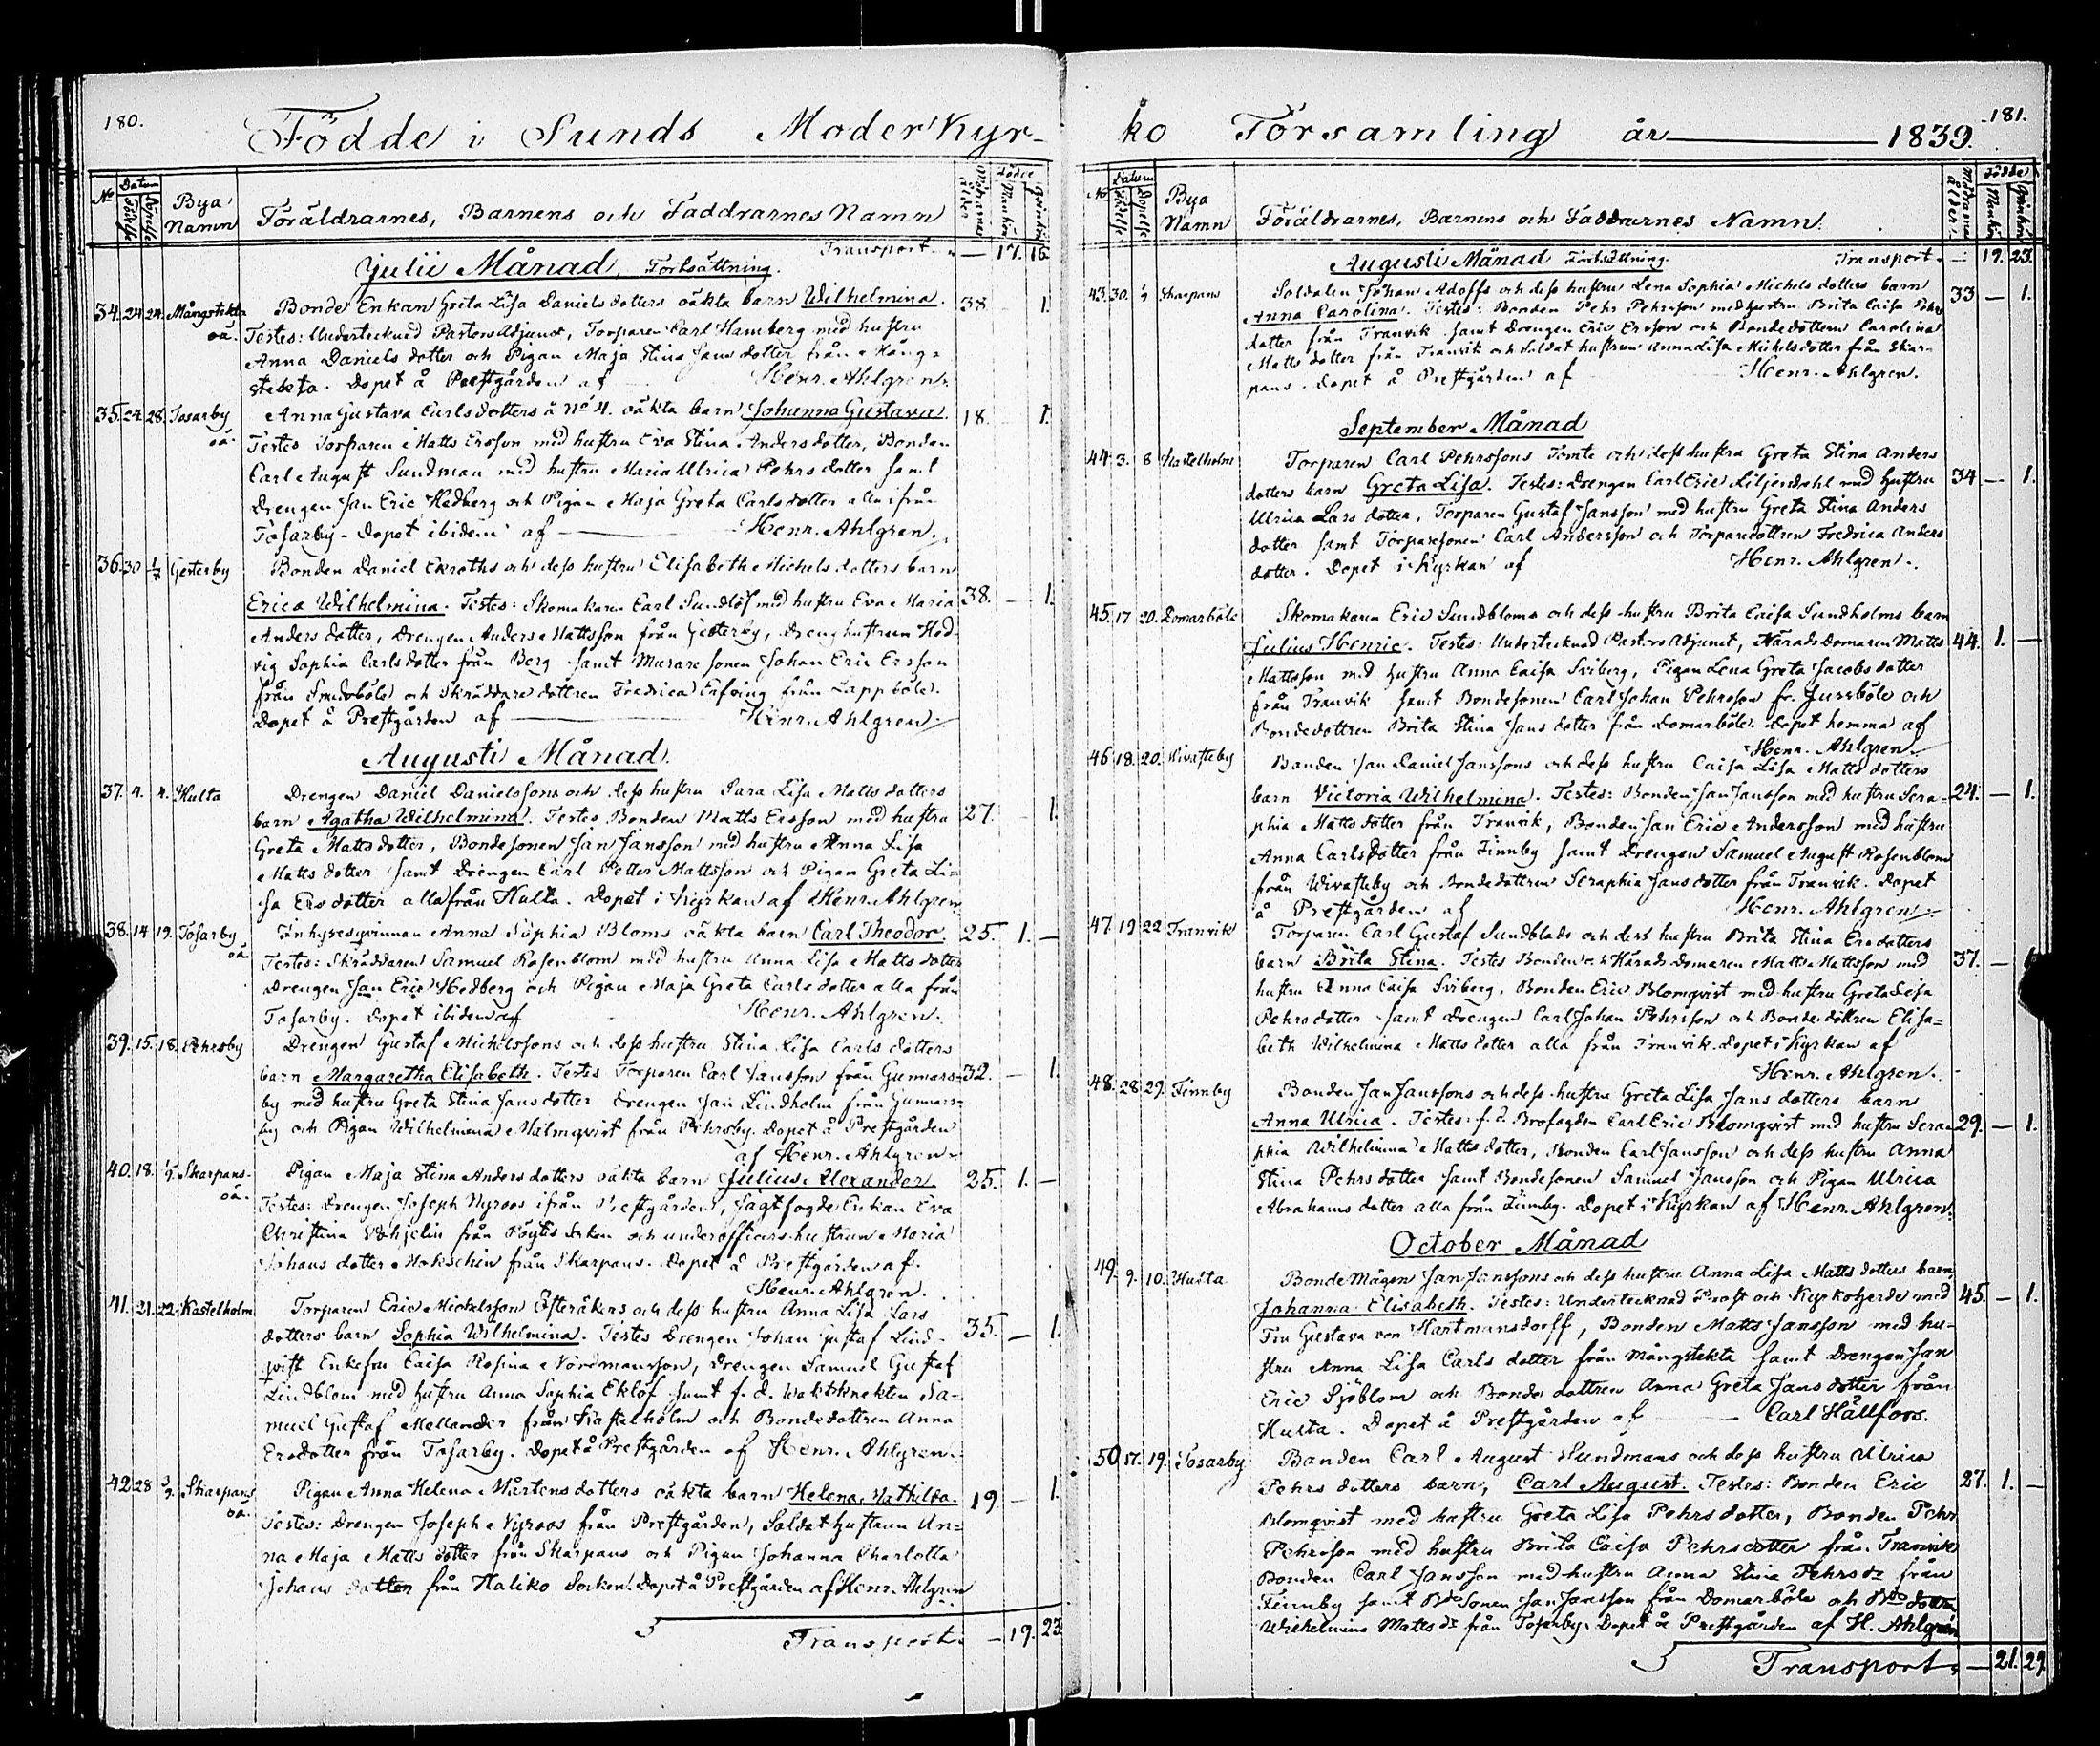 180.
Födde i Sunds Moderkyr-
No Datum Bya Namn Föräldrarnes, Barnens och Faddrarnes Namn Mödrarnas ålder Födde Mankön Qvinkön
Födelse Döpelse
Julii Månad, Fortsättning. Transport - 17. 16.
34. 24 24. Mångstekta Bonde Enkan Greta Lisa Danielsdotters oäkta barn Wilhelmina. 38 1.
oä. Testes: Undertecknad Pastors Adjunct, Torparen Carl Hamberg med hustru
Anna Daniels dotter och Pigan Maja Stina Jans dotter från Mång-
stekta. Döpet å Prestgården af Henr. Ahlgren.
35. 24. 28. Tosarby Anna Gustava Carlsdotters å No 4. oäkta barn Johanna Gustava. 18. 1.
oä. Testes Torparen Matts Ersson med hustru Eva Stina Andersdotter, Bonden
Carl August Sundman med hustru Maria Ulrica Pehrs dotter samt
Drengen Jan Eric Hedberg och Pigan Maja Greta Carlsdotter alla ifrån
Tosarby - Döpet ibidem af Henr. Ahlgren.
36. 30 1/8 Gesterby Bonden Daniel Ekroths och dess hustru Elisabeth Michels dotters barn
Erica Wilhelmina. Testes: Skomakaren Carl Sundlöf med hustru Eva Maria 38. - 1.
Anders dotter, Drengen Anders Mattsson från Gesterby, Dreng hustrun Hed-
vig Sophia Carls dotter från Berg samt Murare sonen Johan Eric Ersson
från Smedsböle och Skräddare dottren Fredrica Erfving från Lappböle.
Döpet å Prestgården af Henr. Ahlgren.
Augusti Månad.
37. 4. 4. Hulta Drengen Daniel Danielssons och dess hustru Sara Lisa Matts dotters
barn Agatha Wilhelmina. Testes Bonden Matts Ersson med hustru 27. 1.
Greta Matts dotter, Bondesonen Jan Jansson med hustru Anna Lisa
Matts dotter samt Drengen Carl Petter Mattsson och Pigan Greta Li-
sa Ers dotter alla från Hulta. Döpet i Kyrkan af Henr. Ahlgren
38. 14 19. Tosarby Inhyses qvinnan Anna Sophia Bloms oäkta barn Carl Theodor. 25. 1. -
oä. Testes: Skräddaren Samuel Rosenblom med hustru Anna Lisa Matts dotter
Drengen Jan Eric Hedberg och Pigan Maja Greta Carls dotter alla från
Tosarby. Döpet ibidem af Henr. Ahlgren.
39. 15. 18. Pehrsby Drengen Gustaf Michelssons och dess hustru Stina Lisa Carls dotters
barn Margaretha Elisabeth. Testes Torparen Carl Jansson från Gunnars- 32. - 1.
by med hustru Greta Stina Jans dotter Drengen Jan Lindholm från Gunnars-
by och Pigan Wilhelmina Malmqvist från Pehrsby. Döpet å Prestgården
af Henr. Ahlgren.
40. 18. 1/9 Skarpans- Pigan Maja Stina Anders dotters oäkta barn Julius Alexander. 25. 1. -
oä. Testes: Drengen Joseph Nyroos ifrån Prestgården, Jägtfogde Enkan Eva
Christina från Pöytis Socken och underofficers hustrun Maria
Johans dotter Mokschin från Skarpans. Döpet å Prestgården af
Henr. Ahlgren.
41. 21. 22. Kastelholm Torparen Eric Michelsson Österåkers och dess hustru Anna Lisa Lars
dotters barn Sophia Wilhelmina. Testes Drengen Johan Gustaf Lind- 35. - 1.
qvist Enkefru Caisa Rosina Nordmansson, Drengen Samuel Gustaf
Lindblom med hustru Anna Sophia Eklöf samt f. d. Waktknekten Sa-
muel Gustaf Mellander från Kastelholm och Bondedottren Anna
Ersdotter från Tosarby. Döpet å Prestgården af Henr. Ahlgren.
42 28 3/9 Skarpans Pigan Anna Helena Mårtens dotters oäkta barn Helena Mathilda. 19 - 1.
oä. Testes: Drengen Joseph Nyroos från Prestgården, Soldat hustrun An-
na Maja Matts dotter från Skarpans och Pigan Johanna Charlotta
Johans dotter från Haliko Socken. Döpet å Prestgården af Henr. Ahlgren
Transport. - 19. 23.
181.
ko Församling år 1839.
No Datum Bya Namn Föräldrarnes, Barnens och Faddrarnes Namn. Mödrarnas ålder. Födde Mankön Qvinkön
Födelse Döpelse
Augusti Månad Fortsättning. Transport. - 19. 23.
43. 30. 1/9 Skarpans Soldaten Johan Adoffs och dess hustru Lena Sophia Michels dotters barn 33 - 1.
Anna Carolina. Testes: Bonden Pehr Pehrsson med hustru Brita Caisa Pehrs
dotter från Tranvik samt Drengen Eric Ersson och Bondedottren Carolina
Matts dotter från Tranvik och Soldat hustrun Anna Lisa Michelsdotter från Skar-
pans. Döpet å Prestgården af Henr. Ahlgren.
September Månad
44. 3. 8 Kastelholm Torparen Carl Pehrssons Tomte och dess hustru Greta Stina Anders
dotters barn Greta Lisa. Testes: Drengen Carl Eric Liljendahl med hustru 34 - 1.
Ulrica Lars dotter, Torparen Gustaf Jansson med hustru Greta Stina Anders
dotter samt Torparesonen Carl Andersson och Torparedottren Fredrica Anders
dotter. Döpet i Kyrkan af Henr. Ahlgren.
45. 17 20. Domarböle Skomakaren Eric Sundbloms och dess hustru Brita Caisa Sundholms barn
Julius Henric. Testes: Undertecknad Past:rs Adjunct, Härads Domaren Matts 44. 1. -
Mattsson med hustru Anna Caisa Sviberg, Pigan Lena Greta Jacobs dotter
från Tranvik samt Bondesonen Carl Johan Pehrsson fr. Jussböle och
Bondedottren Brita Stina Jans dotter från Domarböle. Döpet hemma af
Henr. Ahlgren
46 18. 20. Wivasteby Bonden Jan Daniel Janssons och dess hustru Caisa Lisa Matts dotters
barn Victoria Wilhelmina. Testes: Bonden Jan Jansson med hustru Sera- 24. - 1.
phia Matts dotter från Tranvik, Bonden Jan Eric Andersson med hustru
Anna Carlsdotter från Finnby samt Drengen Samuel August Rosenblom
från Wivasteby och Bondedottren Seraphia Jans dotter från Tranvik. Döpet
å Prestgården af Henr. Ahlgren.
47 19 22 Tranvik Torparen Carl Gustaf Sundblads och dess hustru Brita Stina Ers dotters
barn Brita Stina. Testes Bonden och Härads Domaren Matts Mattsson med 37. -
hustru Anna Caisa Sviberg, Bonden Eric Blomqvist med hustru Greta Lisa
Pehrs dotter samt Drengen Carl Johan Pehrsson och Bonde dottren Elisa-
beth Wilhelmina Matts dotter alla från Tranvik. Döpet i Kyrkan af
Henr. Ahlgren.
48. 28 29. Finnby Bonden Jan Janssons och dess hustru Greta Lisa Jans dotters barn
Anna Ulrica. Testes: f. d. Brofogden Carl Eric Blomqvist med hustru Sera- 29. - 1.
phia Wilhelmina Matts dotter, Bonden Carl Jansson och dess hustru Anna
Stina Pehrs dotter samt Bondesonen Samuel Jansson och Pigan Ulrica
Abrahams dotter alla från Finnby. Döpet i Kyrkan af Henr. Ahlgren.
October Månad
49. 9. 10. Hulta Bonde Mågen Jan Janssons och dess hustru Anna Lisa Matts dotters barn,
Johanna Elisabeth. Testes: Undertecknad Prost och Kyrkoherde med 45. - 1.
Fru Gustava von Hartmansdorff, Bonden Matts Jansson med hu-
stru Anna Lisa Carls dotter från Mångstekta samt Drengen Jan
Eric Sjöblom och Bonde dottren Anna Greta Jansdotter från
Hulta. Döpet å Prestgården af Carl Hällfors.
50 17. 19. Tosarby Bonden Carl August Sundmans och dess hustru Ulrica
Pehrs dotters barn, Carl August. Testes: Bonden Eric 27. 1. -
Blomqvist med hustru Greta Lisa Pehrsdotter, Bonden Pehr
Pehrsson med hustru Brita Caisa Pehrsdotter från Tranvik
Bonden Carl Jansson med hustru Anna Stina Pehrs dr från
Finnby samt Bde Sonen Jan Jansson från Domarböle och Bde dottren
Wilhelmina Matts dr från Tosarby. Döpet å Prestgården af H. Ahlgren
Transport - 21. 29.